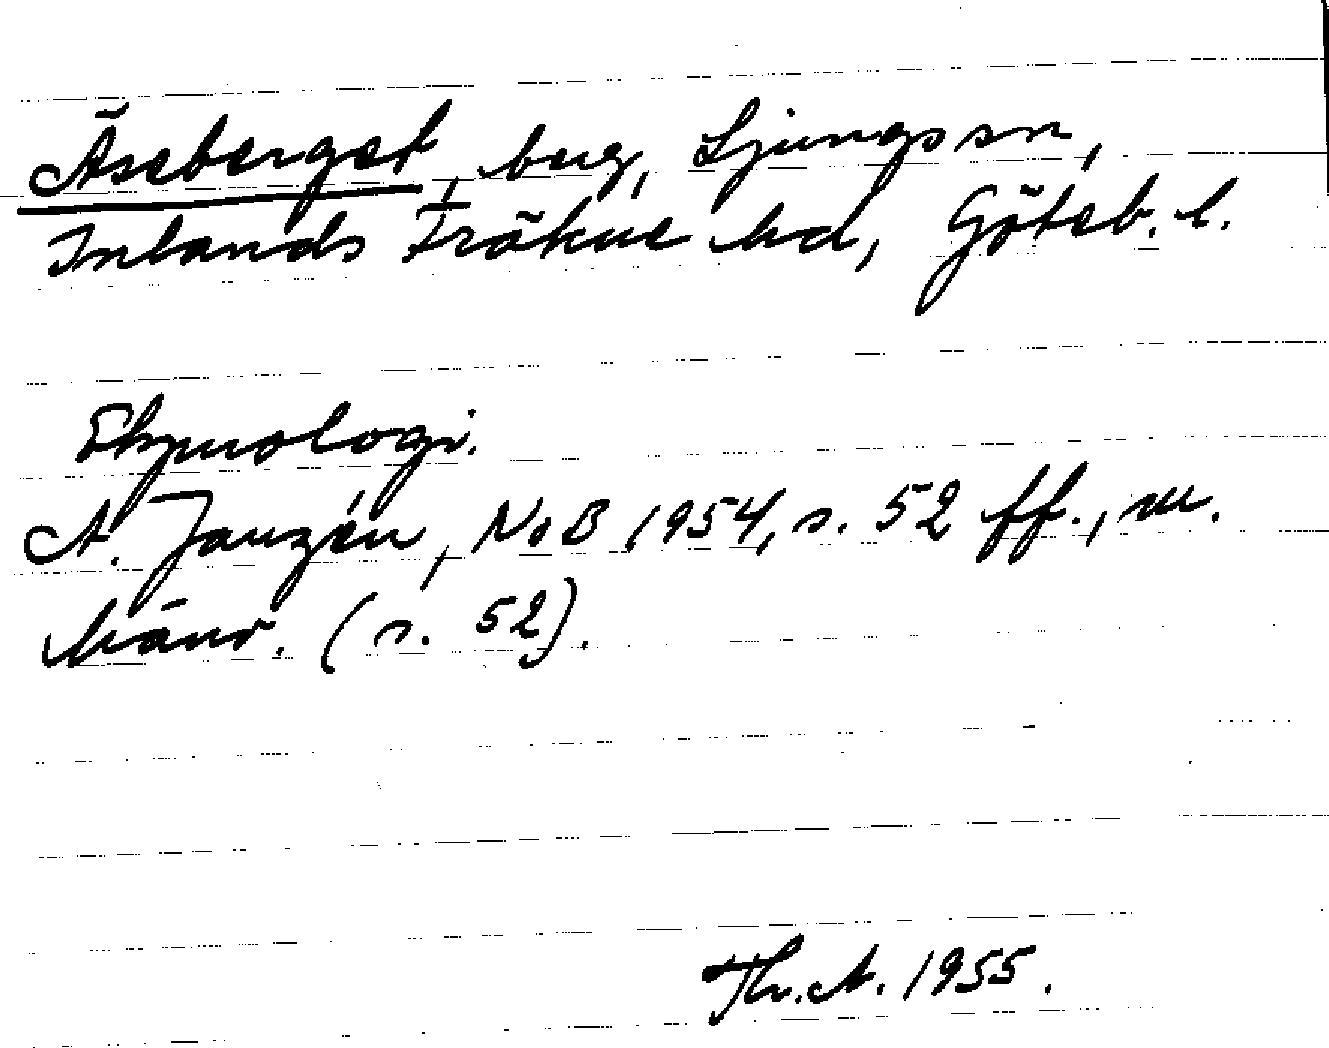 Äseberget, berg, Ljungs sn,
Inlands Fräkne hd, Göteb. l.
Etymologi.
A. Janzén, NoB 1954, s. 52 ff., m.
hänv. (s. 52).
Th. A. 1955.